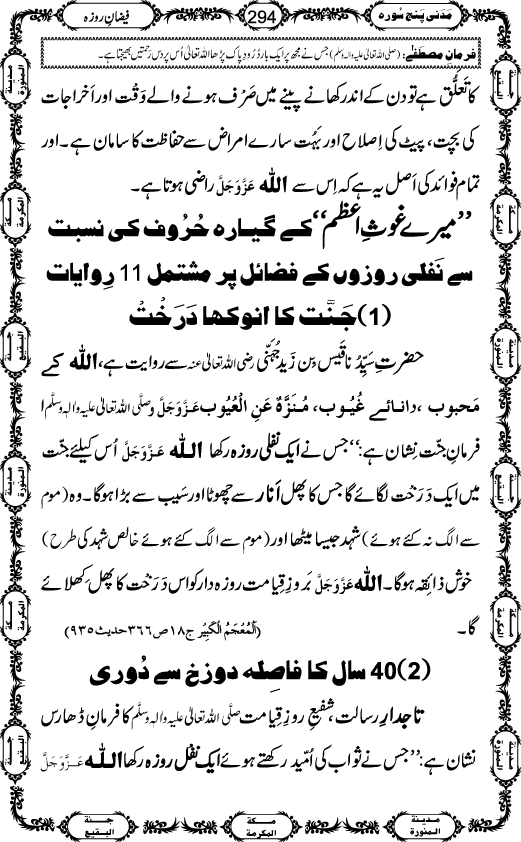 مَدَنی پَنج سُوره 294 فیضانِ روزہ
فرمانِ مصطفٰے: (صلی اللہ تعالیٰ علیہ والہ وسلم) جس نے مجھ پر ایک بار دُرُودِ پاک پڑھا اللہ تعالیٰ اُس پر دس رحمتیں بھیجتا ہے۔
کا تَعلُّق ہے تو دن کے اندر کھانے پینے میں صَرْف ہونے والے وَقْت اور اَخراجات
کی بچت، پیٹ کی اِصلاح اور بَہُت سارے امراض سے حفاظت کا سامان ہے۔ اور
تمام فوائد کی اَصل یہ ہے کہ اِس سے اللہ عَزَّوَجَلَّ راضی ہوتا ہے۔
”میرے غوثِ اعظم“ کے گیارہ حُرُوف کی نسبت
سے نَفلی روزوں کے فضائل پر مشتمل 11 رِوایات
(1) جَنَّت کا انوکھا دَرَخْتْ
حضرتِ سیِّدُنا قیس بن زَید جُہَنی رضی اللہ تعالیٰ عنہ سے روایت ہے، اللہ کے
مَحبوب ،دانائے غُیُوب، مُنَزَّہٌ عَنِ الْعُیُوب عَزَّوَجَلَّ وصلَّی اللہ تعالیٰ علیہ والہٖ وسلَّم ا
فرمانِ جنّت نِشان ہے: ”جس نے ایک نفلی روزہ رکھا اللہ عَزَّوَجَلَّ اُس کیلئے جنّت
میں ایک دَرَخت لگائے گا جس کا پھل اَنار سے چھوٹا اور سَیب سے بڑا ہوگا۔ وہ (موم
سے الگ نہ کئے ہوئے) شہد جیسا میٹھا اور (موم سے الگ کئے ہوئے خالص شہد کی طرح)
خوش ذائقہ ہوگا۔ اللہ عَزَّوَجَلَّ بَروزِ قِیامت روزہ دار کو اس دَرَخت کا پھل کِھلائے
گا۔ (اَلْمُعْجَمُ الْکَبِیْر ج۱۸ ص۳۶۶ حدیث ۹۳۵)
(2) 40 سال کا فاصِلہ دوزخ سے دُوری
تاجدارِ رسالت، شفیعِ روزِ قِیامت صلَّی اللہ تعالیٰ علیہ والہٖ وسلَّم کا فرمانِ ڈھارس
نشان ہے: ”جس نے ثواب کی اُمّید رکھتے ہوئے ایک نفل روزہ رکھا اللہ عَزَّوَجَلَّ
مدینة المنورة
مكة المكرمة
جنة البقيع
مدینة المنورة
مكة المكرمة
جنة البقيع
جنة البقيع
مكة المكرمة
مدینة المنورة
جنة البقيع
مكة المكرمة
مدینة المنورة
جنة البقيع
مكة المكرمة
مدینة المنورة